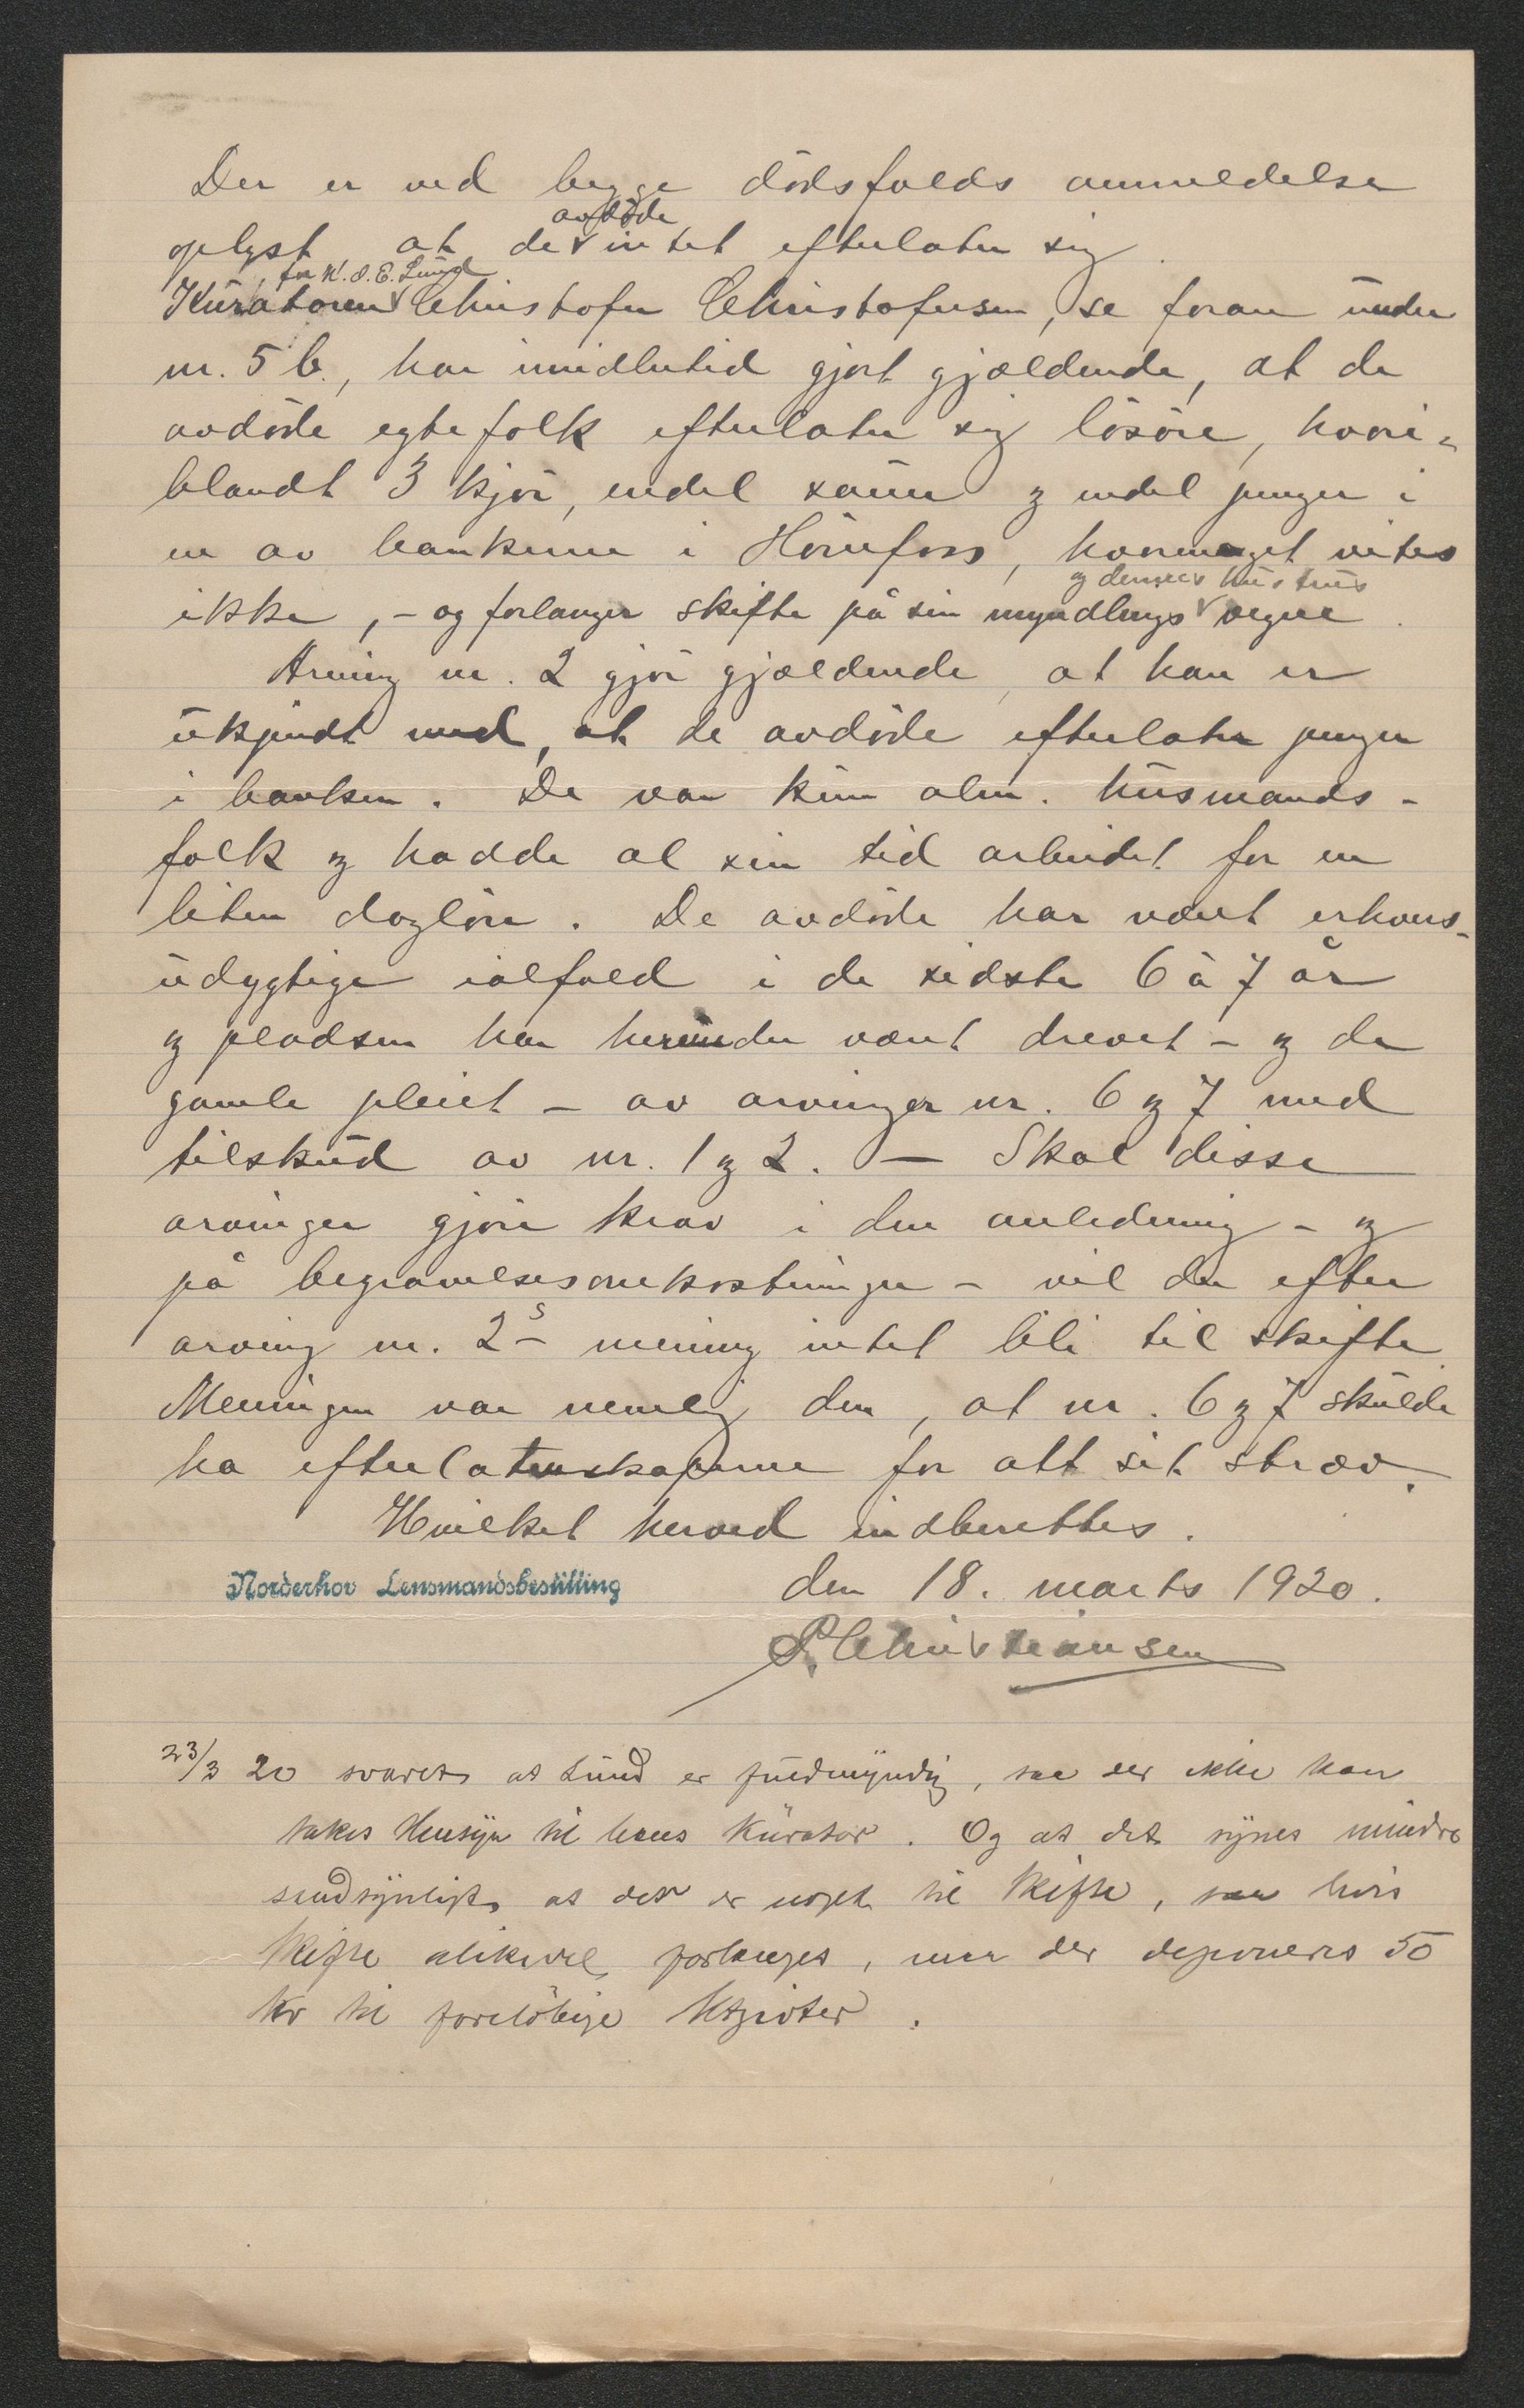 Der er ved begge dödsfalds anmeldelse
oplyst at de avdöde intet efterlater sig.
Kuratoren for K. O. E. Lund Christofer Christofersen, se foran under
nr. 5 b., har imidlertid gjort gjældende, at de
avdöde egtefolk efterlater sig lösöre, hvori-
blandt 3 kjör, endel sauer og endel penger i
en av bankerne i Hönefoss, hvormeget vites
ikke, - og forlanger skifte på sin myndlings og dennes hustrus vegne.
Arving nr. 2 gjör gjældende, at han er
ukjendt med, at de avdöde efterlater penger
i banken. De var kun alm. husmands-
folk og hadde al sin tid arbeidet for en
liten daglön. De avdöde har været erhvervs-
udygtige ialfald i de sidste 6 à 7 år
og pladsen har herunder været drevet - og de
gamle pleiet - av arvinger nr. 6 og 7 med
tilskud av nr. 1 og 2. — Skal disse
arvinger gjöre krav i den anledning - og
på begravelsesomkostninger - vil der efter
arving nr. 2s mening intet bli til skifte.
Meningen var nemlig den, at nr. 6 og 7 skulde
ha efterlatenskaperne for alt sit stræv.
Hvilket herved indberettes.
Norderhov Lensmandsbestilling den 18. marts 1920.
P. Christiansen
23/3 20 svaret at Lund er fuldmyndig, saa der ikke kan
takes Hensyn til hans Kurator. Og at det synes mindre
sandsynligt, at der er noget til Skifte, saa hvis
Skifte alikevel forlanges, maa der deponeres 50
Kr til foreløbige Utgifter.